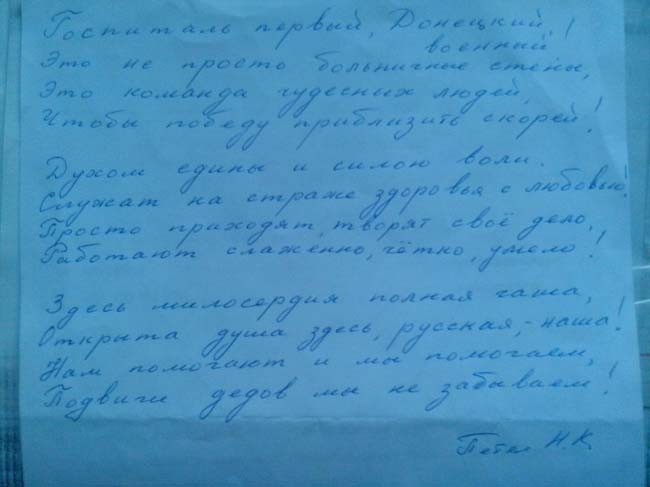 Госпиталь первый, Донецкий,!
военный
Это не просто больничные стены,
Это команда чудесных людей,
Чтобы победу приблизить скорей!
Духом едины и силою воли.
Служат на страже здоровья с любовью!
Просто приходят, творят своё дело,
Работают слаженно, чётко, умело!
Здесь милосердия полная чаша,
Открыта душа здесь, русская,-наша!
Нам помогают и мы помогаем,
Подвиги дедов мы не забываем!
Н.К.